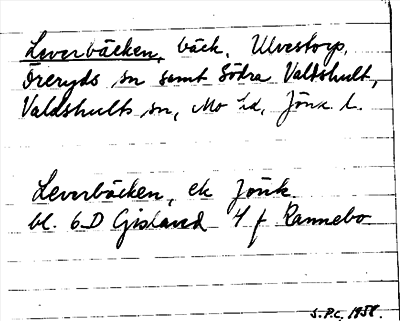 Leverbäcken, bäck, Ulvestorp,
Öreryds sn samt Södra Valdshult,
Valdshults sn, Mo hd, Jönk l.
Leverbäcken, ek Jönk.
bl. 6D Gislaved 4 f Rannebo
S.P.C. 1958.